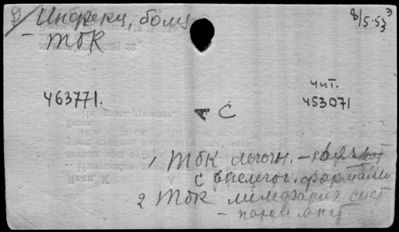 Инфекц, болез
8/5-53
- ТБК
463771.
чит.
453071
С
1 ТБК легочн. -
с внелегоч. формами
2 ТБК лимфатич сист